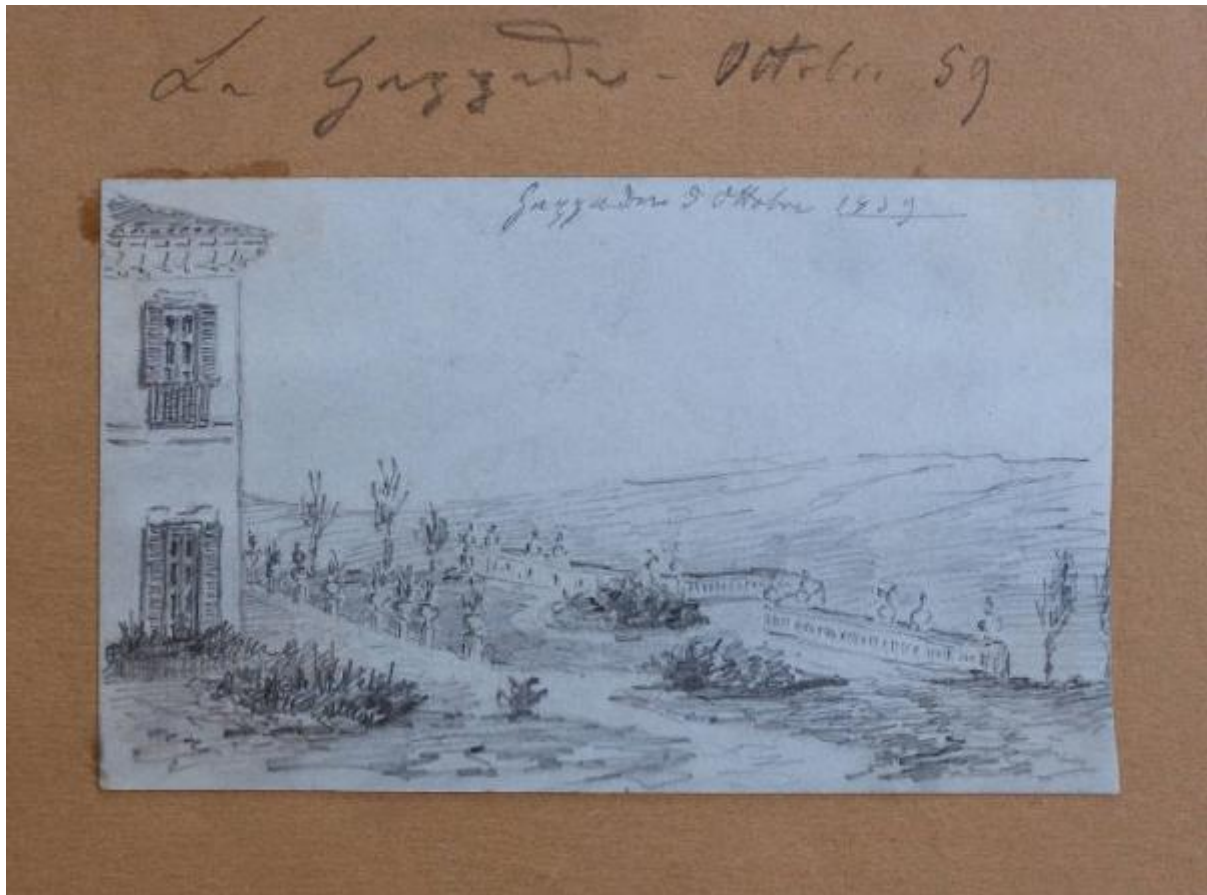 La Gazzada - Ottobre 59
Gazzada Ottobre 1859